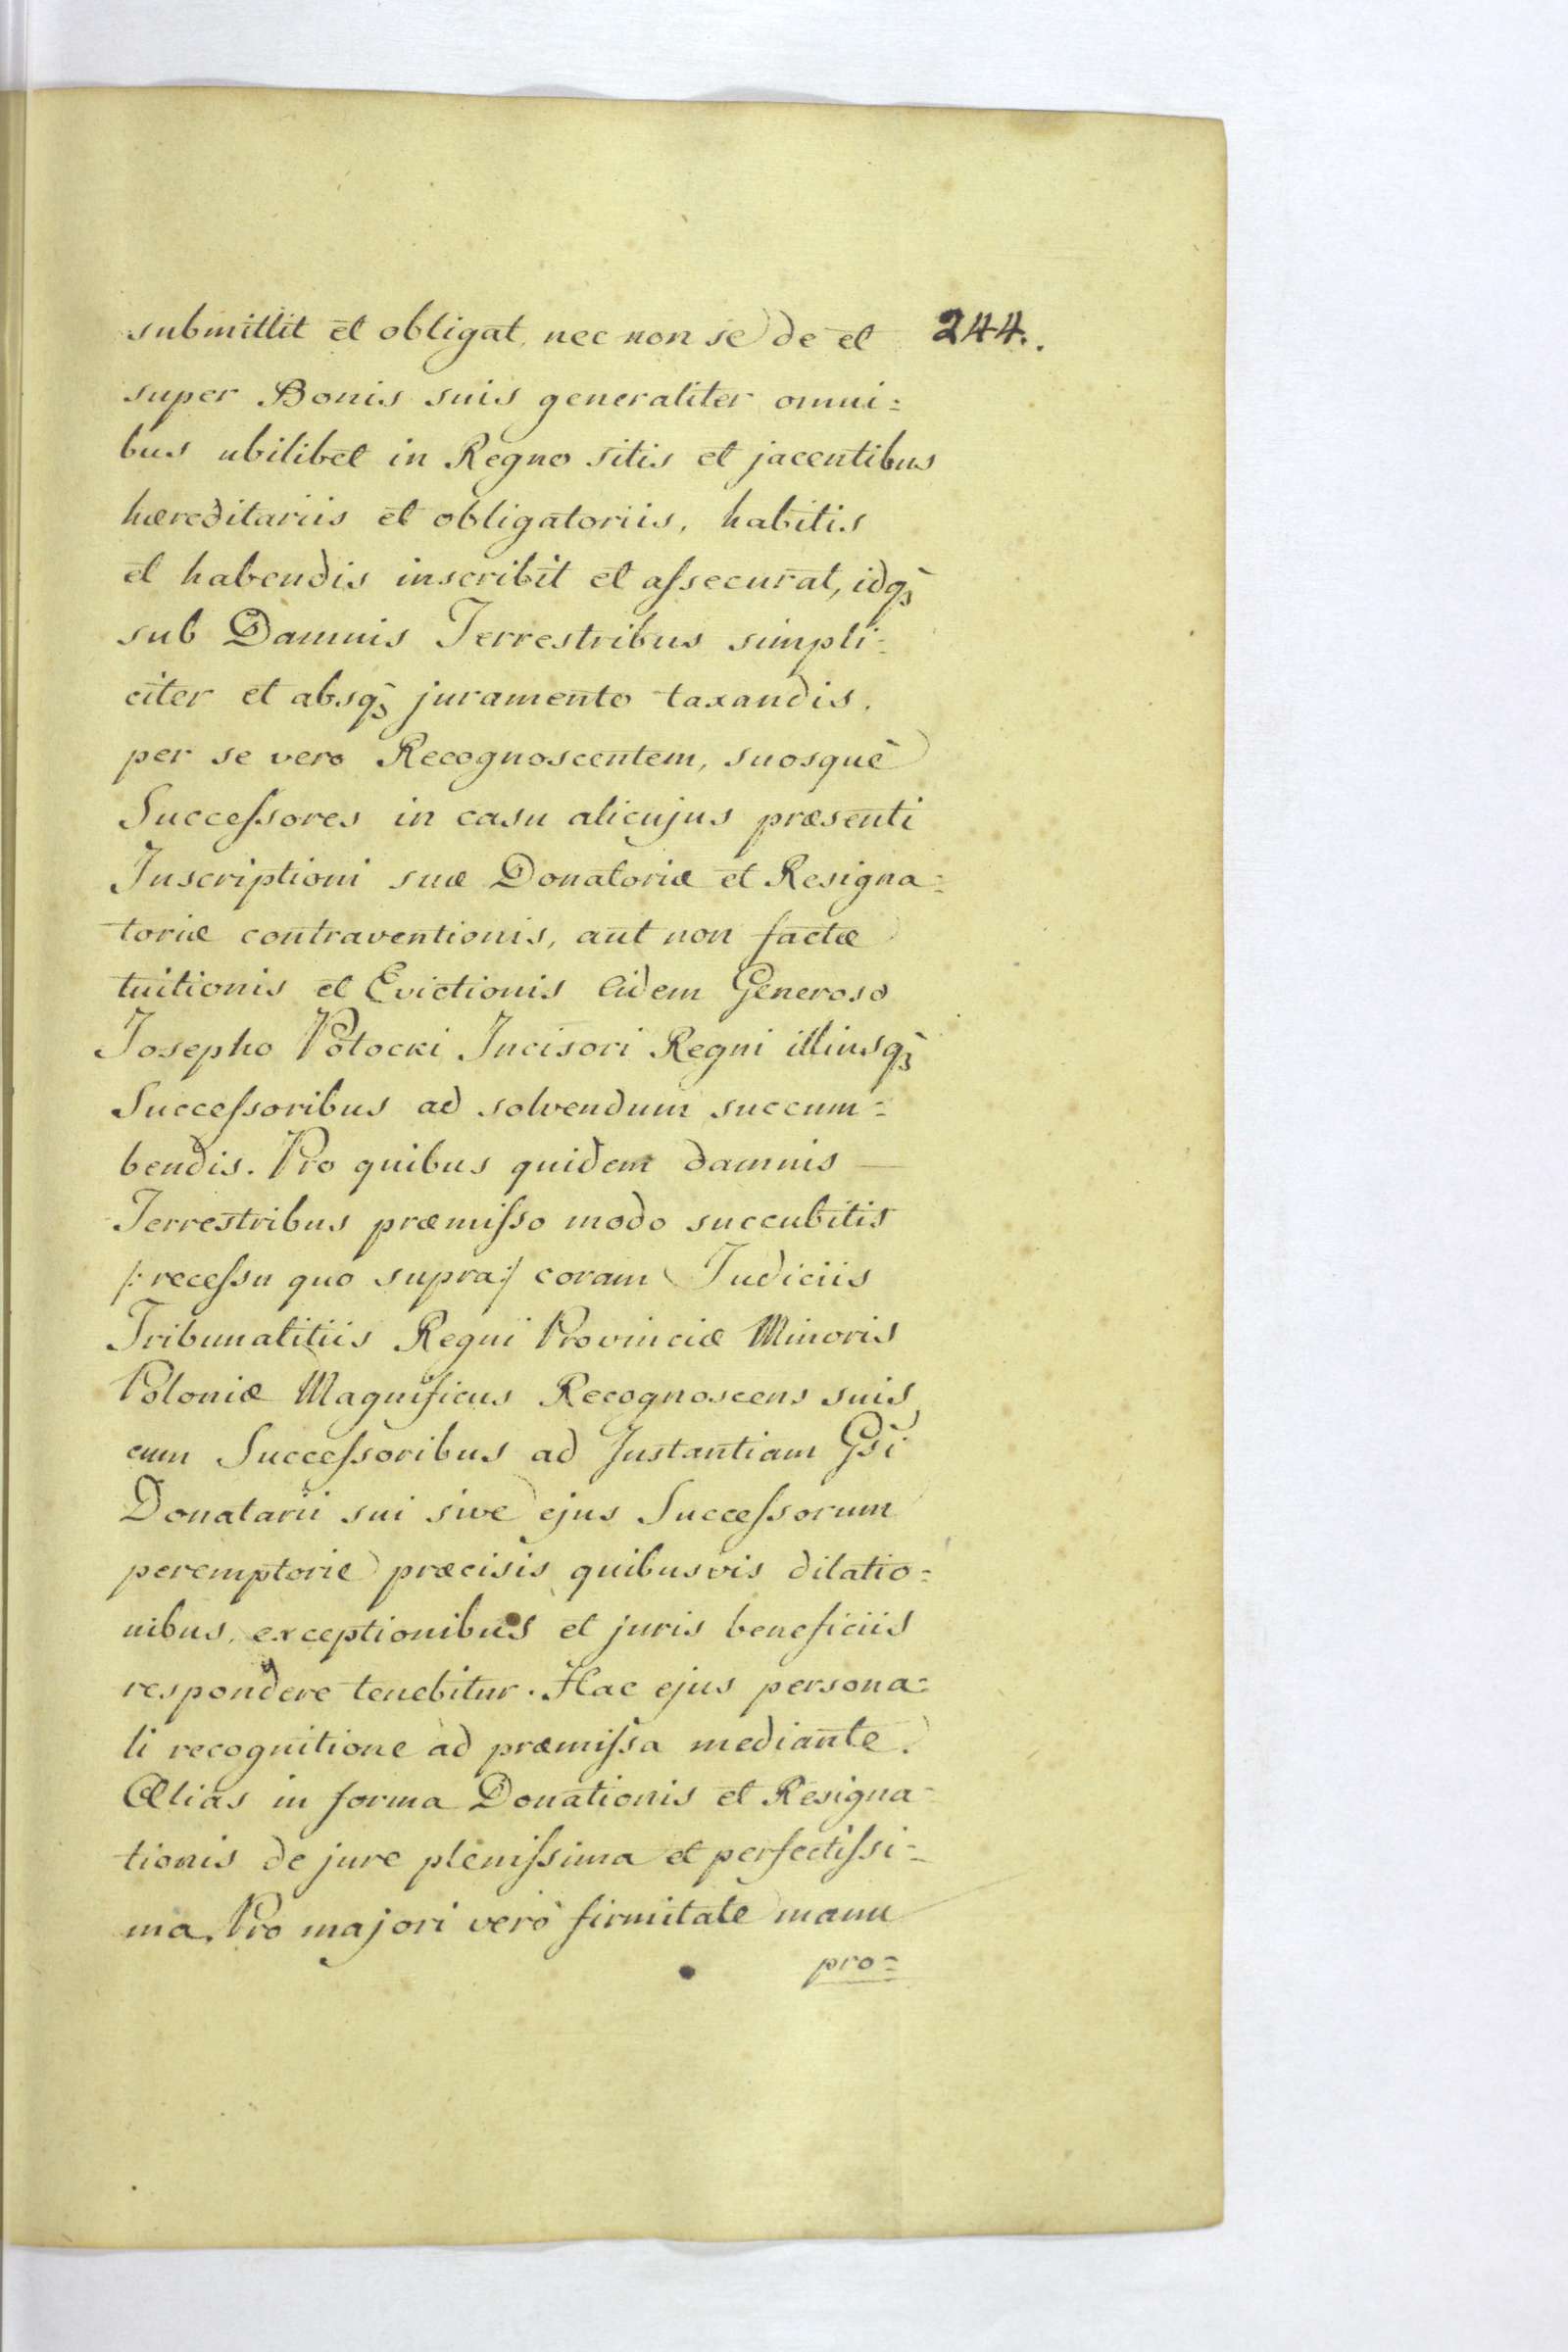 submittit et obligat, nec non se de et 244.
super Bonis suis generaliter omni=
bus ubilibet in Regno sitis et jacentibus
hæreditariis et obligatoriis, habitis
et habendis inscribit et aſsecurat, idq̀ꝫ
sub Damnis Terrestribus simpli=
citer et absq̀ꝫ juramento taxandis.
per se vero Recognoscentem, suosquè
Succeſsores in casu alicujus præsenti
Inscriptioni suæ Donatoriæ et Resigna=
toriæ contraventionis, aut non factæ
tuitionis et Evictionis Eidem Generoso
Josepho Potocki Incisori Regni illiusq̀ꝫ
Succeſsoribus ad solvendum succum=
bendis. Pro quibus quidem damnis —
Terrestribus præmiſso modo succubitis
/: receſsu quo supra :/ coram Judiciis
Tribunalitiis Regni Provinciæ Minoris
Poloniæ Magnificus Recognoscens suis
cum Succeſsoribus ad Instantiam Gsi
Donatarii sui sive ejus Succeſsorum
peremptorie præcisis quibusvis dilatio=
nibus, exceptionibus et juris beneficiis
respondere tenebitur. Hac ejus persona=
li recognitione ad præmiſsa mediante.
Alias in forma Donationis et Resigna=
tionis de jure pleniſsima et perfectiſsi=
ma. Pro majori verò firmitate manu
pro=